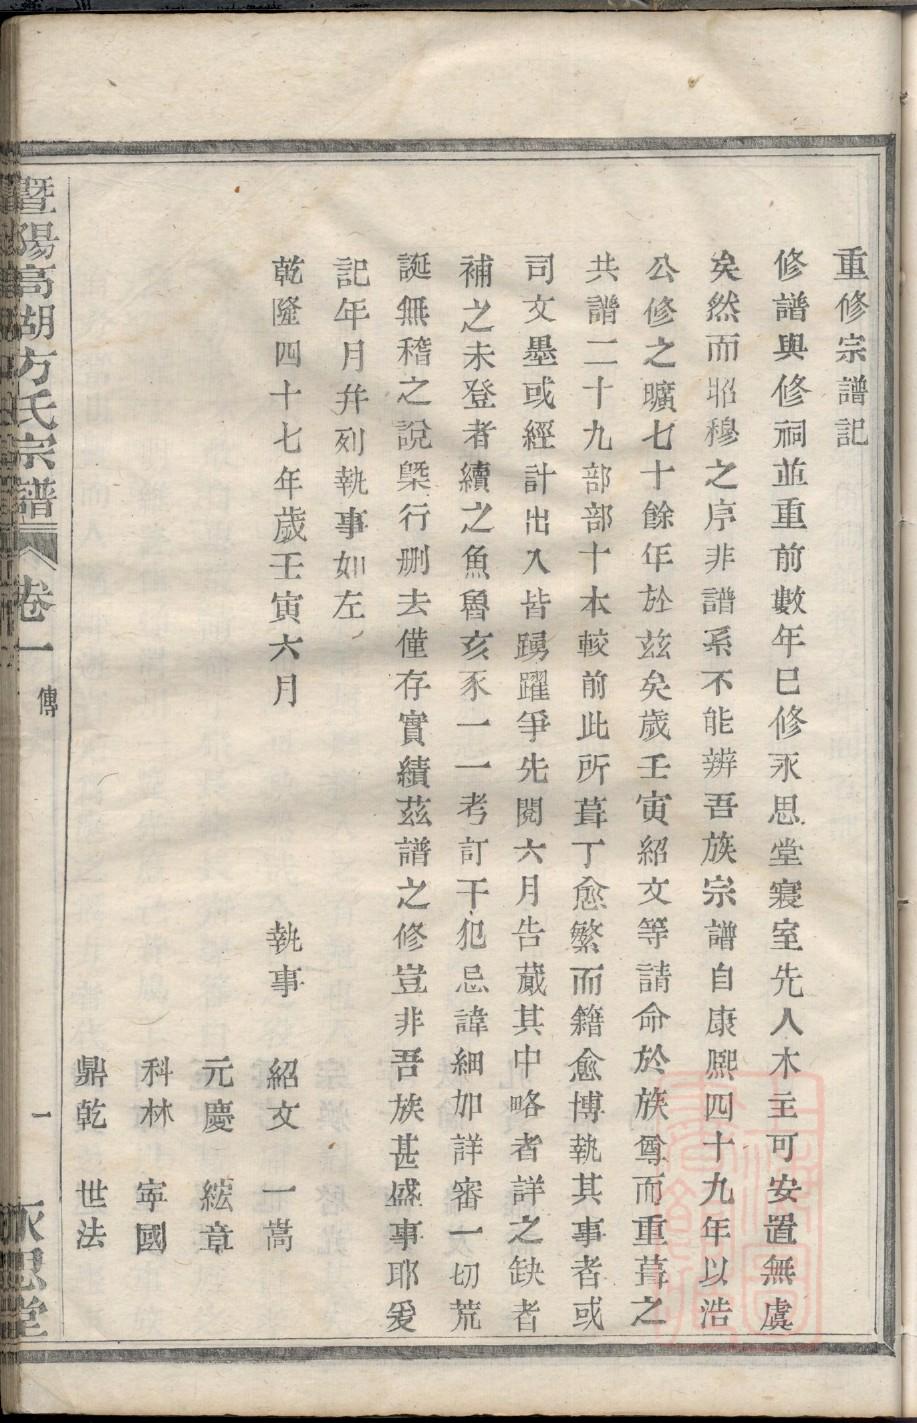 重修宗譜記
修譜與修祠並重前數年已修永思堂寢室先人木主可安置無虞
矣然而昭穆之序非譜系不能辨吾族宗譜自康熙四十九年以浩
公修之曠七十餘年於茲矣歲壬寅紹文等請命於族尊而重葺之
共譜二十九部部十本較前此所葺丁愈繁而籍愈博執其事者或
司文墨或經計出入皆踴躍爭先閱六月告蕆其中略者詳之缺者
補之未登者續之魚魯亥豕一一考訂干犯忌諱細加詳審一切荒
誕無稽之說槩行刪去僅存實績茲譜之修豈非吾族甚盛事耶爰
記年月幷列執事如左
乾隆四十七年歲壬寅六月
執事 紹文 一嵩
元慶 綋章
科林 寧國
鼎乾 世法
暨陽高湖方氏宗譜 卷一 傳 一 永思堂